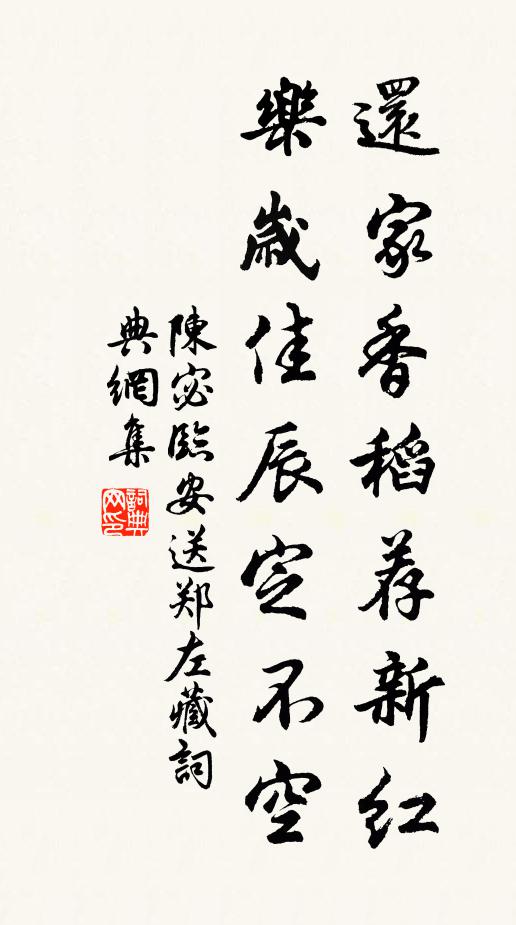 還家香稻荐新红
樂歲佳辰定不空
陳宓臨安送郑左藏詞
典網集
詞典网印